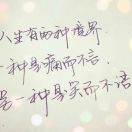 人生有两种境界
一种是痛而不言
另一种是笑而不语